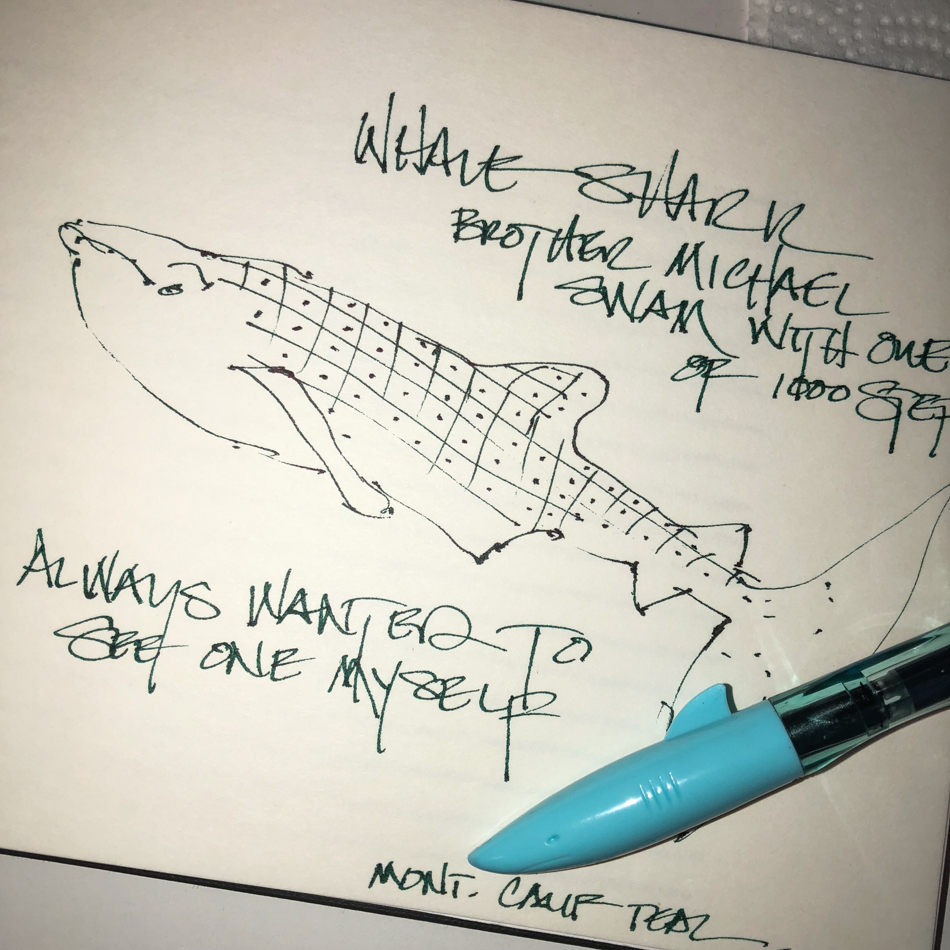 WHALE SHARK
BROTHER MICHAEL
SWAM WITH ONE
OF 1000 STEP
ALWAYS WANTED TO
SEE ONE MYSELF
MONT. CALIF TEAL